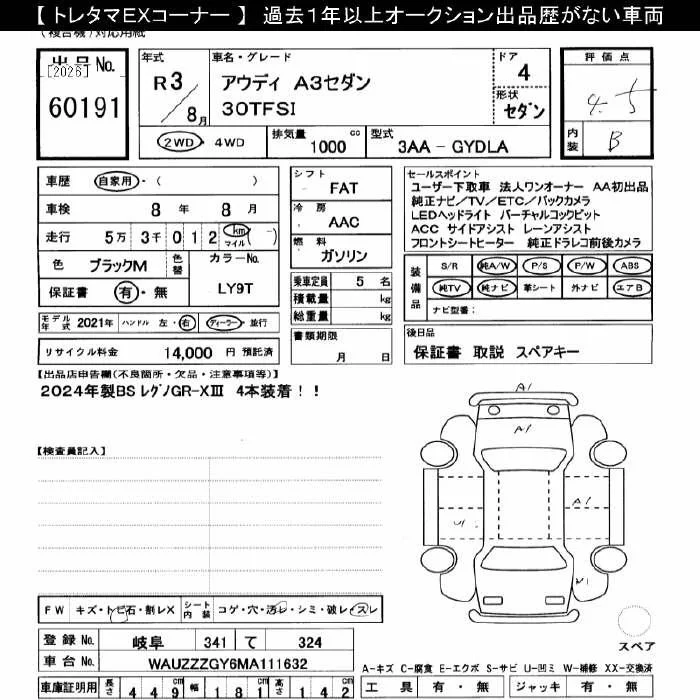 【 トレタマEXコーナー 】 過去1年以上オークション出品歴がない車両
(複合機)対応用紙
出品No.
[2026]
60191
年式
R3
8月
車名・グレード
アウディ A3セダン
30TFSI
ドア
4
形状
セダン
評価点
4.5
内装
B
2WD・4WD
排気量
1000 cc
型式
3AA - GYDLA
車歴 自家用・( )
車検 8年 8月
走行 5万 3千 0 1 2 km マイル (-)
色 ブラックM
色替
カラーNo.
LY9T
保証書 有・無
シフト
FAT
冷房
AAC
燃料
ガソリン
乗車定員 5 名
積載量 kg
総重量 kg
セールスポイント
ユーザー下取車 法人ワンオーナー AA初出品
純正ナビ/TV/ETC/バックカメラ
LEDヘッドライト バーチャルコックピット
ACC サイドアシスト レーンアシスト
フロントシートヒーター 純正ドラレコ前後カメラ
装備品
S/R 純A/W P/S P/W ABS
純TV 純ナビ 革シート 外ナビ エアB
ナビ型番:
モデル年式 2021年 ハンドル 左・右 ディーラー・並行
リサイクル料金 14,000 円 預託済
書類期限
月 日
後日品
保証書 取説 スペアキー
【出品店申告欄(不良箇所・欠品・注意事項等)】
2024年製BS レグノGR-XⅢ 4本装着!!
【検査員記入】
A1
A1
A1
U1
W1
FW キズ・トビ石・割レX
シート内装 コゲ・穴・汚レ・シミ・破レ・スレ
登録No. 岐阜 341 て 324
車台No. WAUZZZGY6MA111632
スペア
A-キズ C-腐食 E-エクボ S-サビ U-凹ミ W-補修 XX-交換済
車庫証明用 長さ 449 cm 幅 181 cm 高さ 142 cm
工具 有・無 ジャッキ 有・無